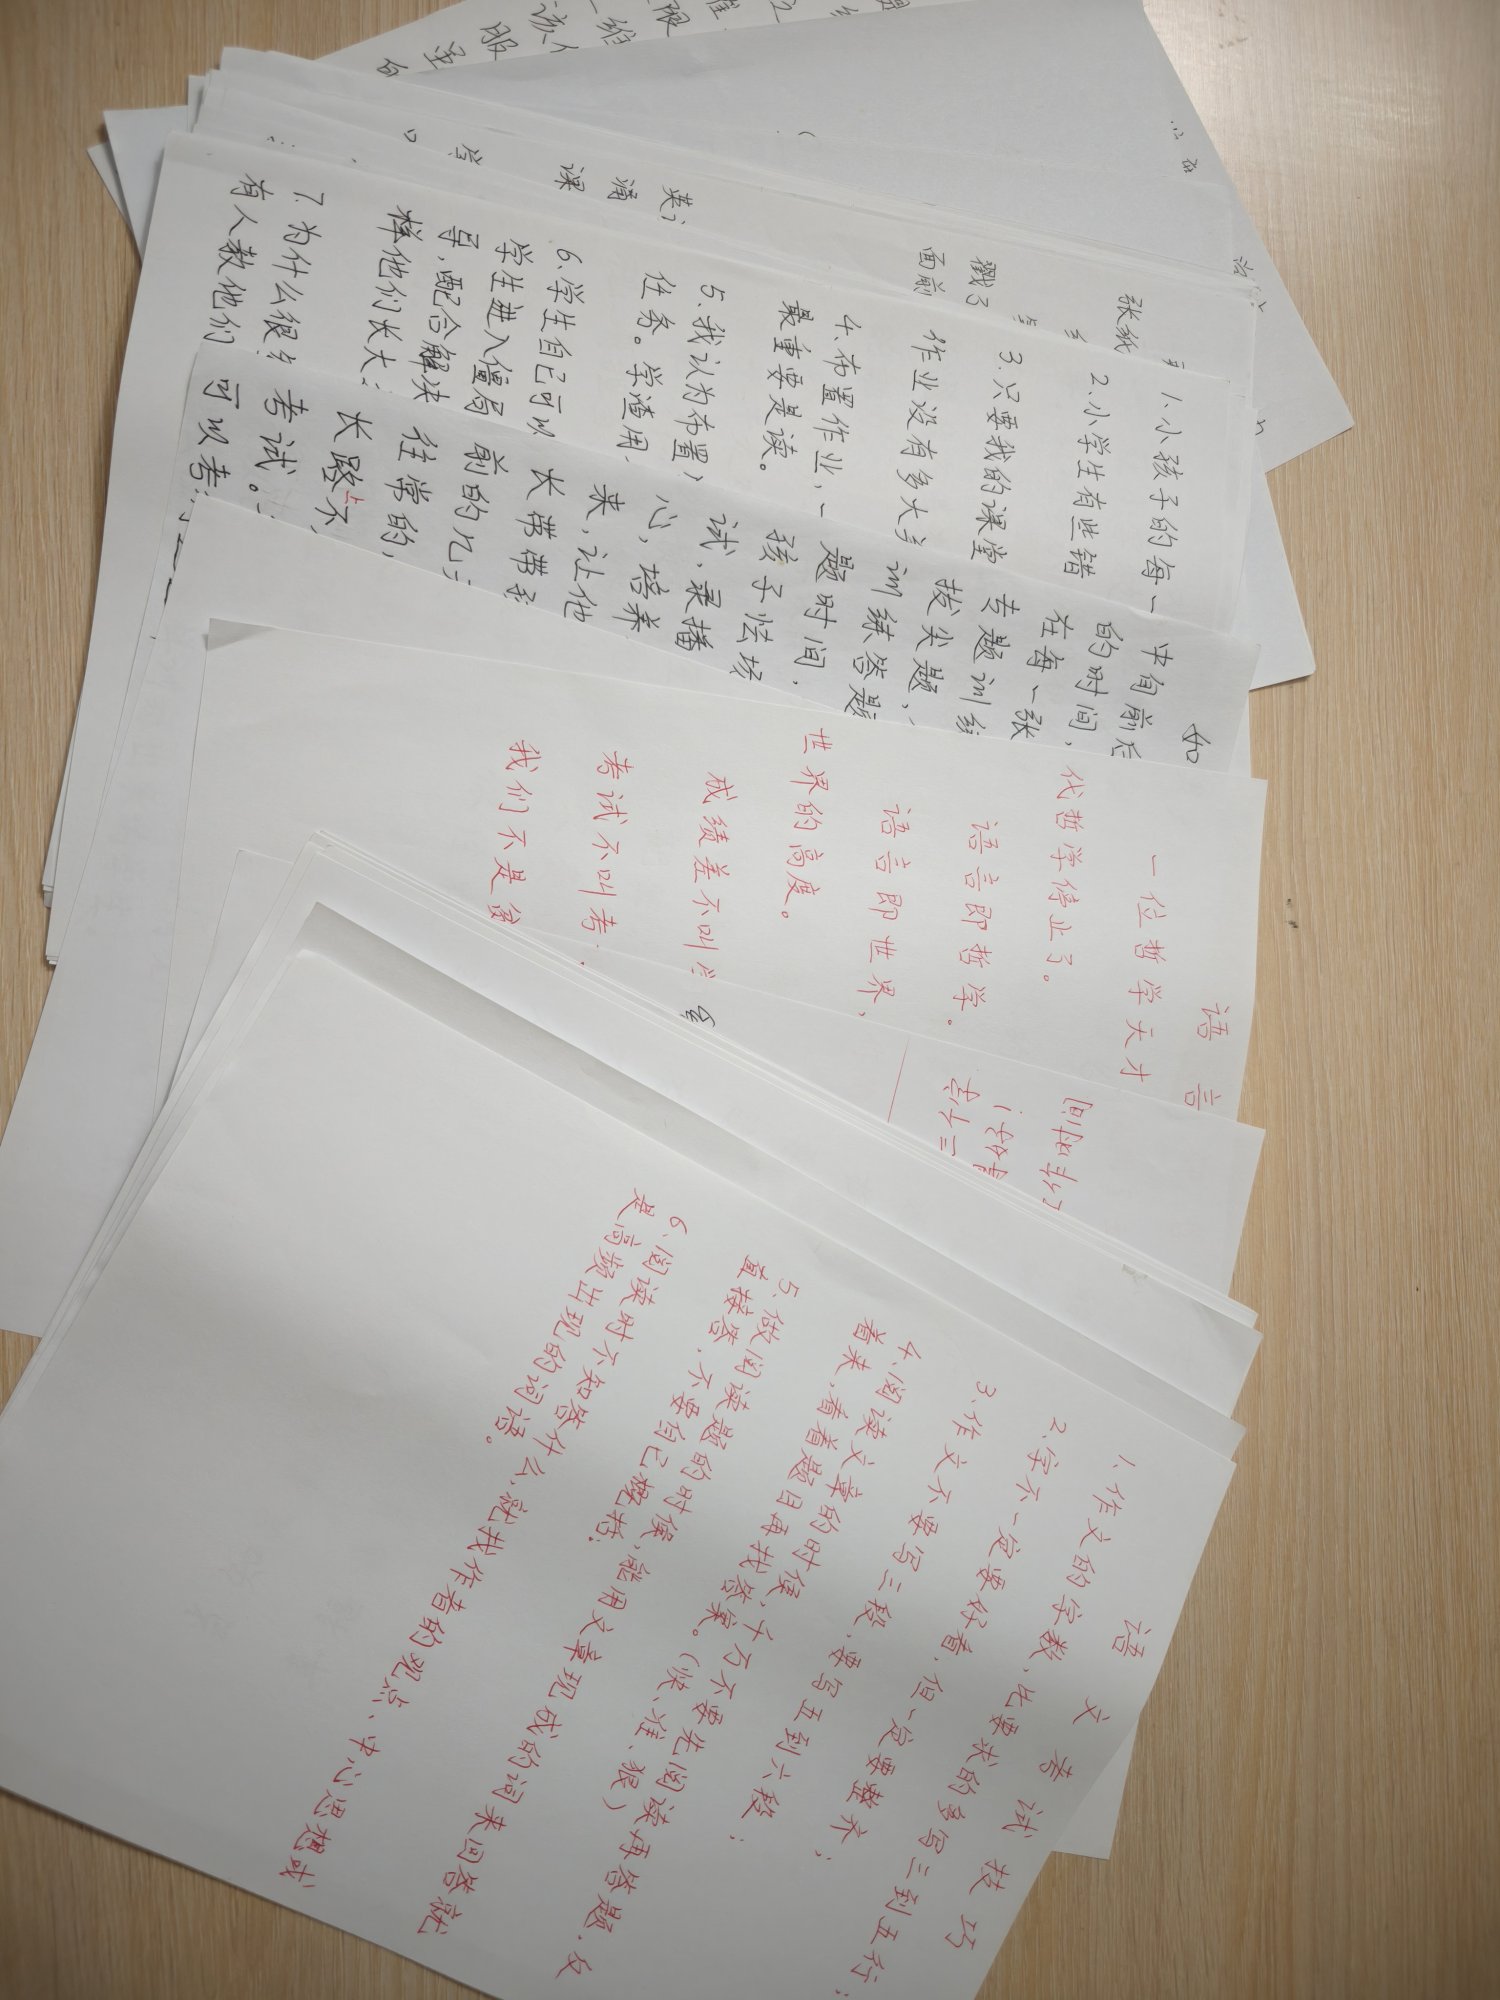 语文考试技巧
1.作文的字数,比要求的多写三到五行;
2.字不一定要好看,但一定要整齐;
3.作文不要写三段,要写五到六段;
4.阅读文章的时候,千万不要先阅读再答题,反
着来,看着题目再找答案。(快、准、狠)
5.做阅读题的时候,能用文章现成的词来回答就
直接答,不要自己概括;
6.阅读时不知答什么,就找作者的观点、中心思想或
是高频出现的词语。
语言
一位哲学天才
代哲学停止了。
语言即哲学。
语言即世界,
世界的高度。
成绩差不叫
考试不叫考
我们不是
如
中旬前后
的时间,
在每一张
专题训练
拔尖题,
训练答题
题时间,
孩子怯场
试,录播
心,培养
来,让他
长带带我
前的几
往常的,
长路不
考试。
可以考
1.小孩子的每一
2.小学生有些错
3.只要我的课堂
作业没有多大关
4.布置作业,一
最重要是读。
5.我认为布置
任务。学渣用
6.学生自己可以
学生进入僵局
导,配合解决
样他们长大
7.为什么很多
有人教他们
张纸
戳了
面前
英
滴
课
服
该